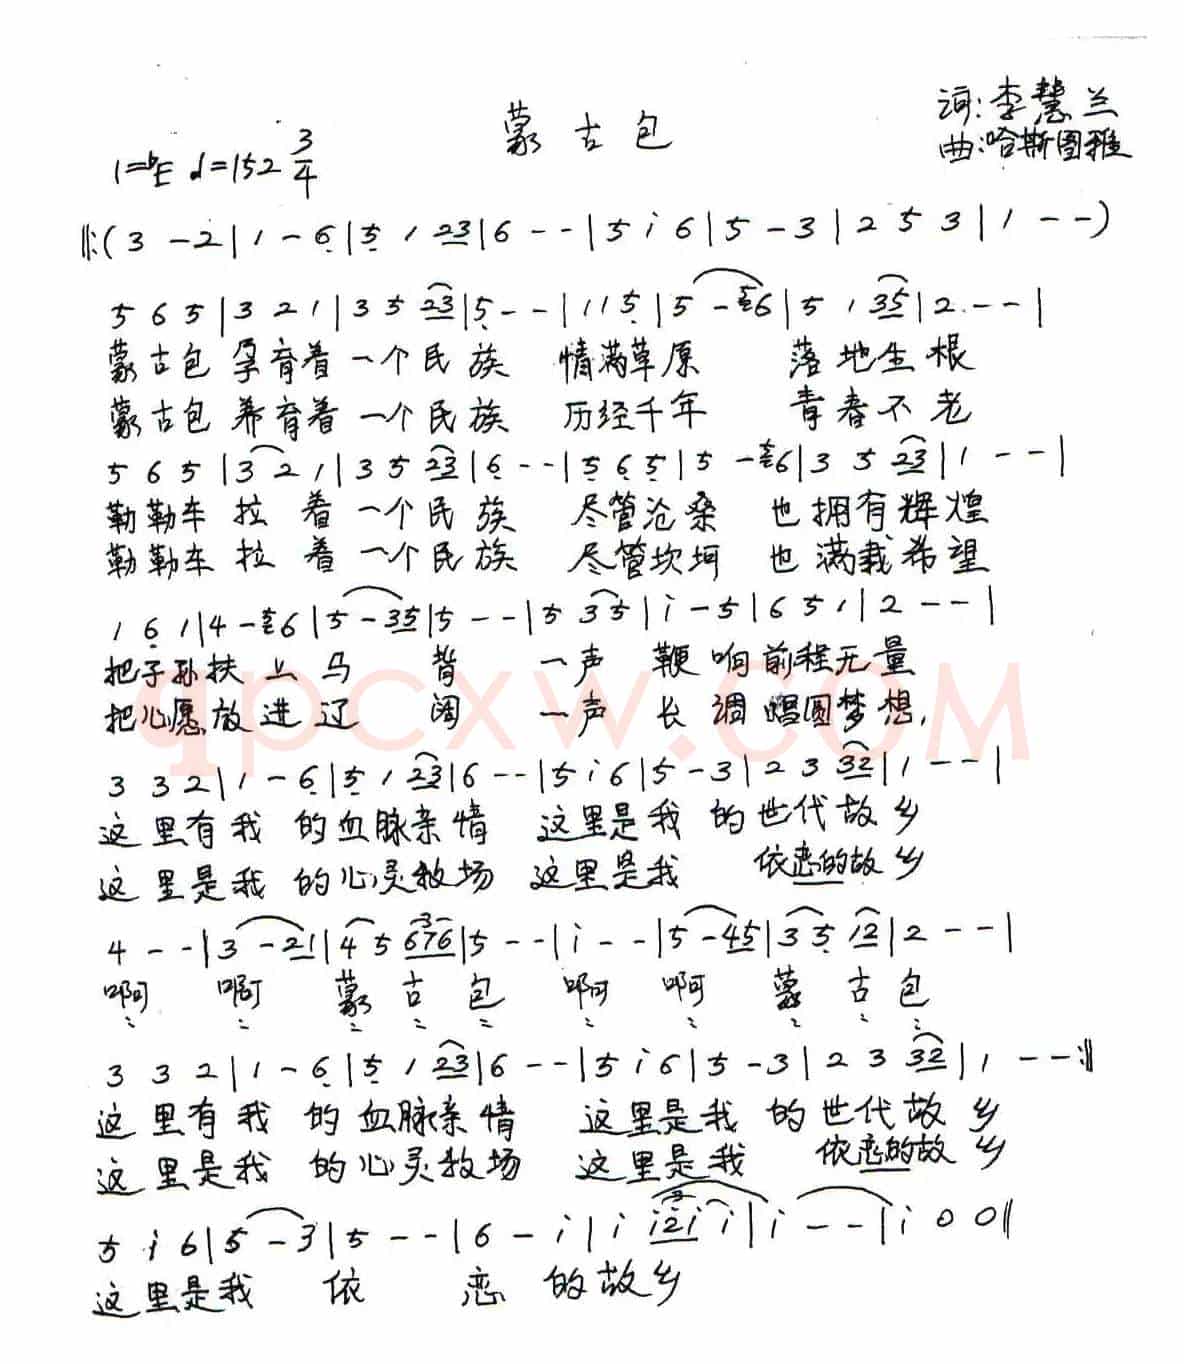 蒙古包
词:李慧兰
曲:哈斯图雅
1=bE d=152 3/4
‖:(3 -2|1 - 6|5 1 23|6 - -|5 i 6|5 - 3|2 5 3|1 - -)
5 6 5|3 2 1|3 5 23|5 - -|1 1 5|5 - 6|5 1 35|2 - -|
蒙古包 孕育着 一个民族 情满草原 落地生根
蒙古包 养育着 一个民族 历经千年 青春不老
5 6 5|3 2 1|3 5 23|6 - -|5 6 5|5 - 6|3 5 23|1 - -|
勒勒车 拉着一个民族 尽管沧桑 也拥有辉煌
勒勒车 拉着一个民族 尽管坎坷 也满载希望
1 6 1|4 - 6|5 - 35|5 - -|5 3 5|i - 5|6 5 1|2 - -|
把子孙扶上马背 一声鞭响前程无量
把心愿放进辽阔 一声长调唱圆梦想,
3 3 2|1 - 6|5 1 23|6 - -|5 i 6|5 - 3|2 3 32|1 - -|
这里有我的血脉亲情 这里是我的世代故乡
这里是我的心灵牧场 这里是我 依恋的故乡
4 - -|3 - 21|4 5 676|5 - -|i - -|5 - 45|3 5 12|2 - -|
啊 啊 蒙古包 啊 啊 蒙古包
3 3 2|1 - 6|5 1 23|6 - -|5 i 6|5 - 3|2 3 32|1 - -:‖
这里有我的血脉亲情 这里是我的世代故乡
这里是我的心灵牧场 这里是我 依恋的故乡
5 i 6|5 - 3|5 - -|6 - i|i i2i i|i - -|i 0 0‖
这里是我 依恋的故乡
qpcxw.com